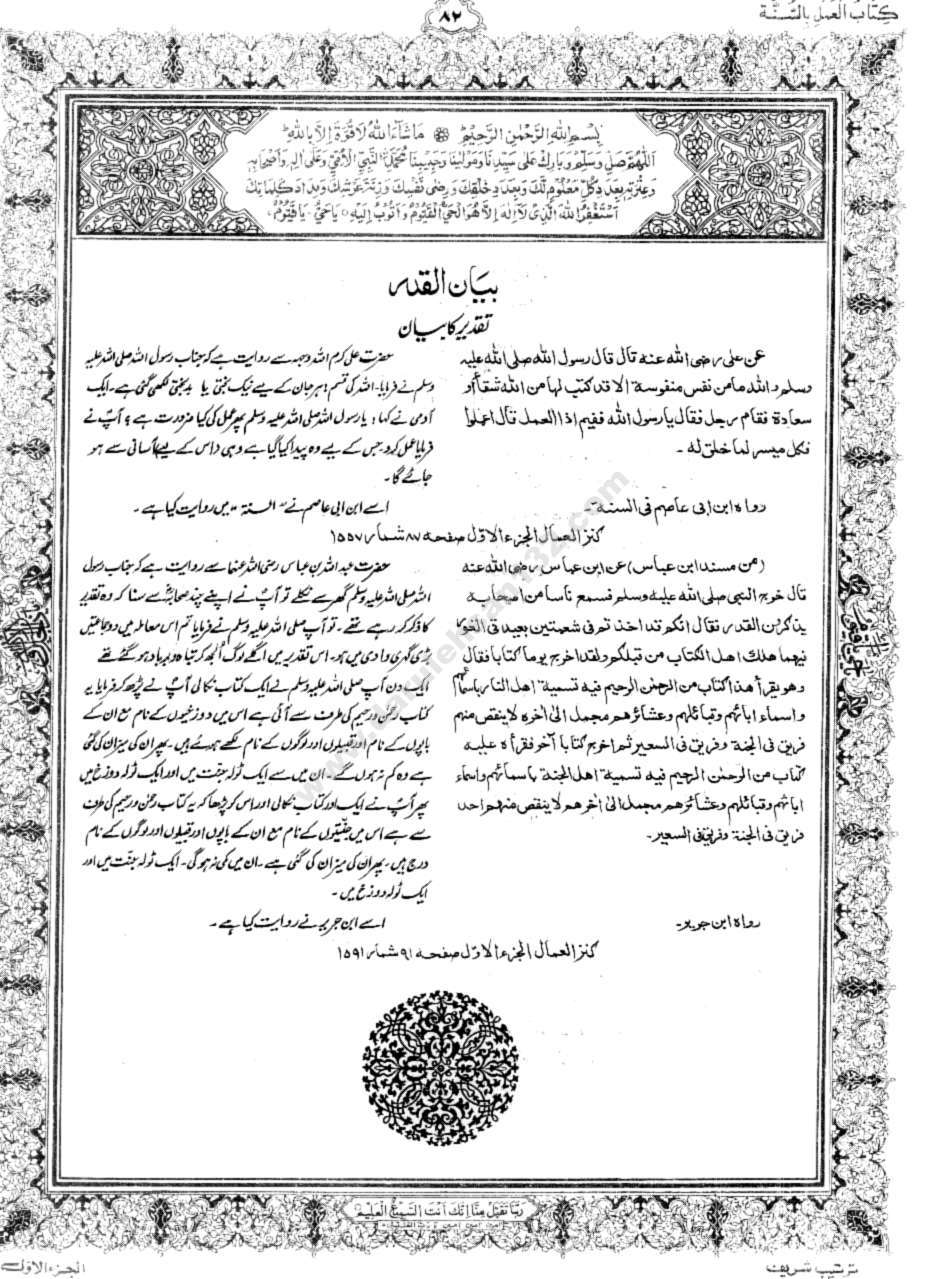 كِتَابُ الْعَمَلِ بِالسُّنَّة
٨٢
بِسْمِ اللهِ الرَّحْمٰنِ الرَّحِيْمِ مَا شَآءَ اللهُ لَا قُوَّةَ اِلَّا بِاللهِ
اَللّٰهُمَّ صَلِّ وَسَلِّمْ وَبَارِكْ عَلٰى سَيِّدِنَا وَمَوْلٰينَا وَحَبِيْبِنَا مُحَمَّدِ النَّبِيِّ الْاُمِّيِّ وَعَلٰى اٰلِهٖ وَاَصْحَابِهٖ
وَعِتْرَتِهٖ بِعَدَدِ كُلِّ مَعْلُوْمٍ لَّكَ وَبِعَدَدِ خَلْقِكَ وَرِضٰى نَفْسِكَ وَزِنَةَ عَرْشِكَ وَمِدَادَ كَلِمَاتِكَ
اَسْتَغْفِرُ اللهَ الَّذِيْ لَا اِلٰهَ اِلَّا هُوَ الْحَيُّ الْقَيُّوْمُ وَاَتُوْبُ اِلَيْهِ يَا حَيُّ يَا قَيُّوْمُ
بيان القدر
تقدیر کا بیان
عن على رضى الله عنه قال قال رسول الله صلى الله عليه
وسلم والله ما من نفس منفوسة الا قد كتب لها من الله شقأ او
سعادة فقام رجل فقال يا رسول الله ففيم اذا العمل قال اعملوا
فكل ميسر لما خلق له ۔
رواه ابن ابى عاصم فى السنة ۔
حضرت علی کرم اللہ وجہہ سے روایت ہے کہ جناب رسول اللہ صلی اللہ علیہ
وسلم نے فرمایا۔ اللہ کی قسم! ہر جان کے لیے نیک بختی یا بدبختی لکھی گئی ہے۔ ایک
آدمی نے کہا؛ یا رسول اللہ صلی اللہ علیہ وسلم پھر عمل کی کیا ضرورت ہے؟ آپ نے
فرمایا عمل کرو۔ جس کے لیے وہ پیدا کیا گیا ہے وہی اس کے لیے آسانی سے ہو
جائے گا۔
اسے ابن ابی عاصم نے "السنۃ" میں روایت کیا ہے۔
كنز العمال الجزء الاول صفحہ ۸۷ شمار ۱۵۵۷
(من مسند ابن عباس) عن ابن عباس رضى الله عنه
قال خرج النبى صلى الله عليه وسلم فسمع ناسا من اصحابه
يذكرن القدر فقال انكم قد اخذتم فى شعبتين بعيدتى الغوا
فيهما هلك اهل الكتاب من قبلكم ولقد اخرج يوما كتابا فقال
وهو يقرأ هذا كتاب من الرحمٰن الرحيم فيه تسمية اهل النار باسمائهم
واسماء ابائهم وقبائلهم وعشائرهم مجمل الىٰ اخره لا ينقص منهم
فريق فى الجنة وفريق فى السعير ثم اخرج كتابا آخر فقرأه عليه
كتاب من الرحمٰن الرحيم فيه تسمية اهل الجنة باسمائهم واسماء
ابائهم وقبائلهم وعشائرهم مجمل الى اخرهم لا ينقص منهم احد
فريق فى الجنة وفريق فى السعير۔
رواه ابن جرير۔
حضرت عبداللہ بن عباس رضی اللہ عنہما سے روایت ہے کہ جناب رسول
اللہ صلی اللہ علیہ وسلم گھر سے نکلے تو آپ نے اپنے چند صحابہ سے سنا کہ وہ تقدیر
کا ذکر کر رہے تھے۔ تو آپ صلی اللہ علیہ وسلم نے فرمایا تم اس معاملہ میں دو جماعتیں
بڑی گہری وادی میں ہو۔ اس تقدیر میں اگلے لوگ اُلجھ کر تباہ و برباد ہو گئے تھے
ایک دن آپ صلی اللہ علیہ وسلم نے ایک کتاب نکالی آپ نے پڑھ کر فرمایا یہ
کتاب رحمٰن و رحیم کی طرف سے آئی ہے اس میں دوزخیوں کے نام مع ان کے
باپوں کے نام اور قبیلوں اور لوگوں کے نام لکھے ہوئے ہیں۔ پھر ان کی میزان کی گئی
ہے وہ کم نہ ہوں گے۔ ان میں سے ایک ٹولہ جنت میں اور ایک ٹولہ دوزخ میں
پھر آپ نے ایک اور کتاب نکالی اور اس کو پڑھا کہ یہ کتاب رحمٰن و رحیم کی طرف
سے ہے اس میں جنتیوں کے نام مع ان کے باپوں اور قبیلوں اور لوگوں کے نام
درج ہیں۔ پھر ان کی میزان کی گئی ہے۔ ان میں کمی نہ ہو گی۔ ایک ٹولہ جنت میں اور
ایک ٹولہ دوزخ میں۔
اسے ابن جریر نے روایت کیا ہے۔
كنز العمال الجزء الاول صفحہ ۹۱ شمار ۱۵۹۱
رَبَّنَا تَقَبَّلْ مِنَّا اِنَّكَ اَنْتَ السَّمِيْعُ الْعَلِيْمُ
ترتيب شريف
الجزء الاول